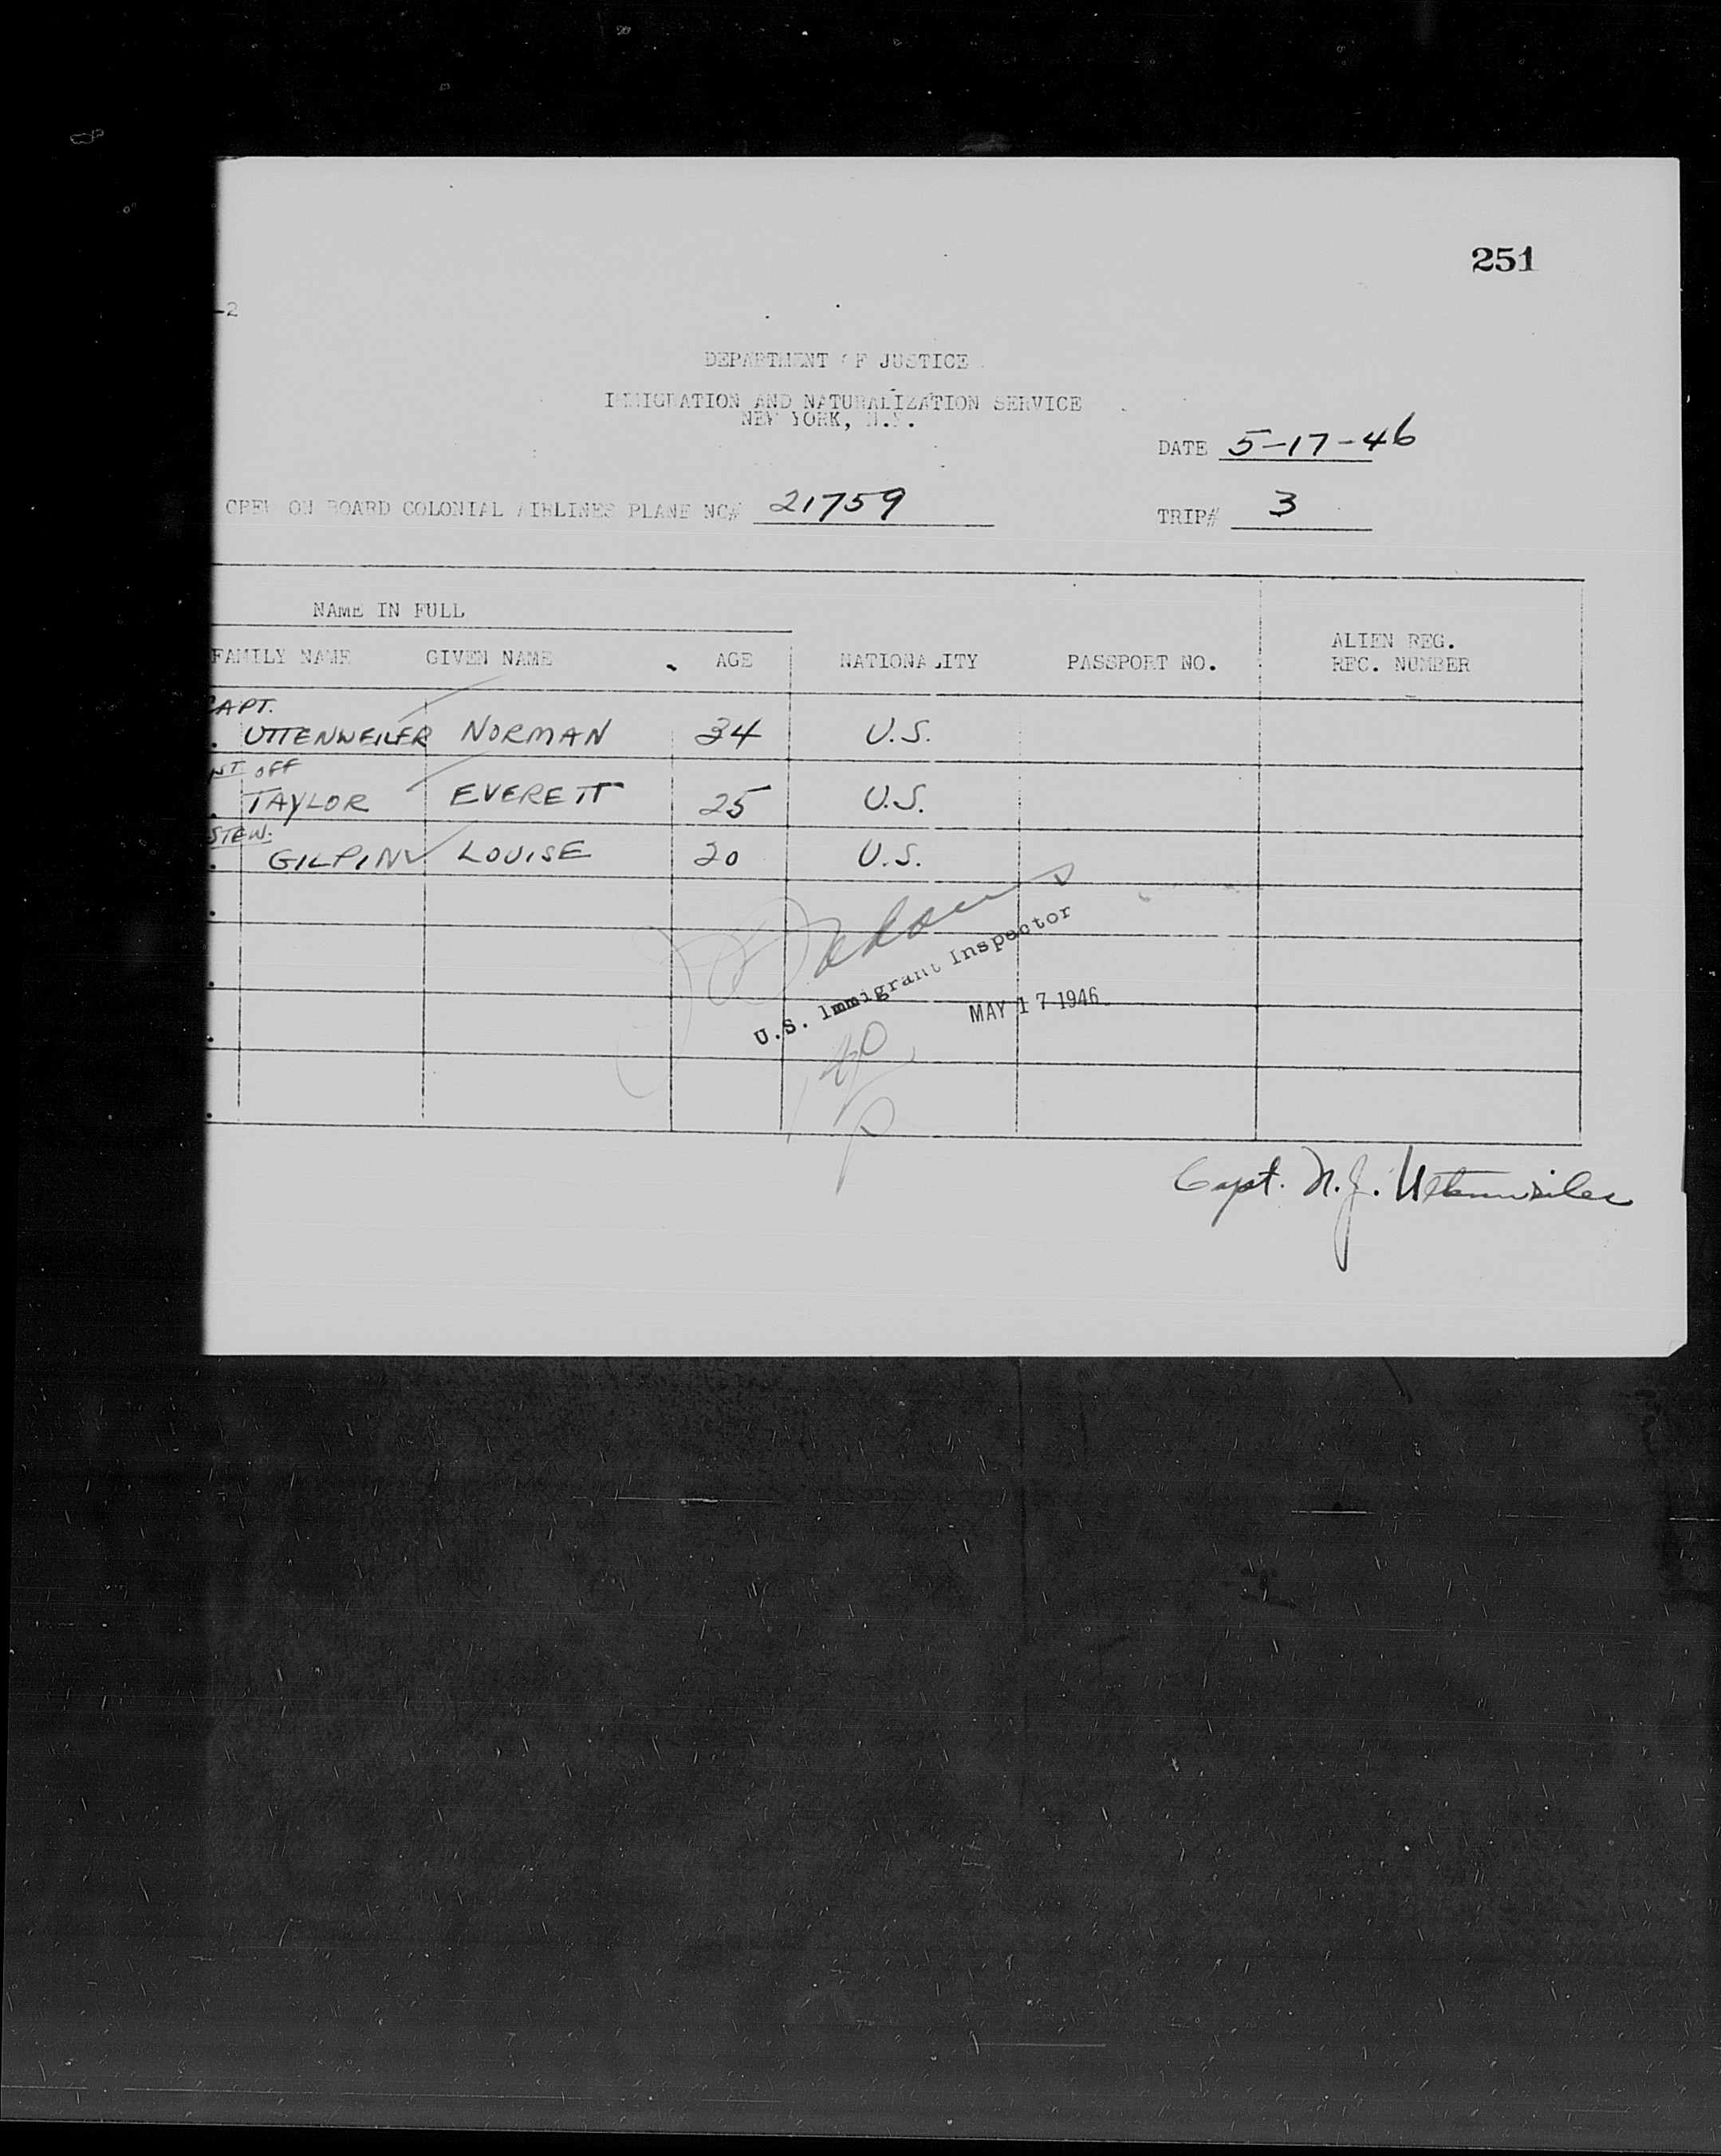 251
-2
DEPARTMENT OF JUSTICE
IMMIGRATION AND NATURALIZATION SERVICE
NEW YORK, N.Y.
DATE 5-17-46
CREW ON BOARD COLONIAL AIRLINES PLANE NC# 21759
TRIP# 3
NAME IN FULL
FAMILY NAME GIVEN NAME AGE NATIONALITY PASSPORT NO. ALIEN REG. REC. NUMBER
CAPT.
UTTENWEILER NORMAN 34 U.S.
OFF
TAYLOR EVERETT 25 U.S.
STEW.
GILPIN LOUISE 20 U.S.
U.S. Immigrant Inspector
MAY 17 1946
Capt. N.J. Uttenweiler